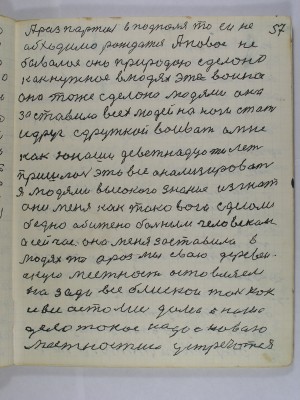 57
А раз партия в подполя то си не
обходимо рождатя А новое не
бывалоя оно природою сделоно
как нужное в людях эта воина
она тоже сделоно людями она
заставила всех людей на ноги стать
и друг с дружкой воевать а мне
как юноши деветнадцоти лет
пришлося это все анализировать
я людями високого знания изгнат
они меня как такового сделоли
бедно обижено болним человекам
а сейчас она меня заставила в
людях то а роз мы свою деревен
скую местность оставляем
на зади все блиской том как
и все остолие дома а наше
дело токое надо с новою
местностию устроется